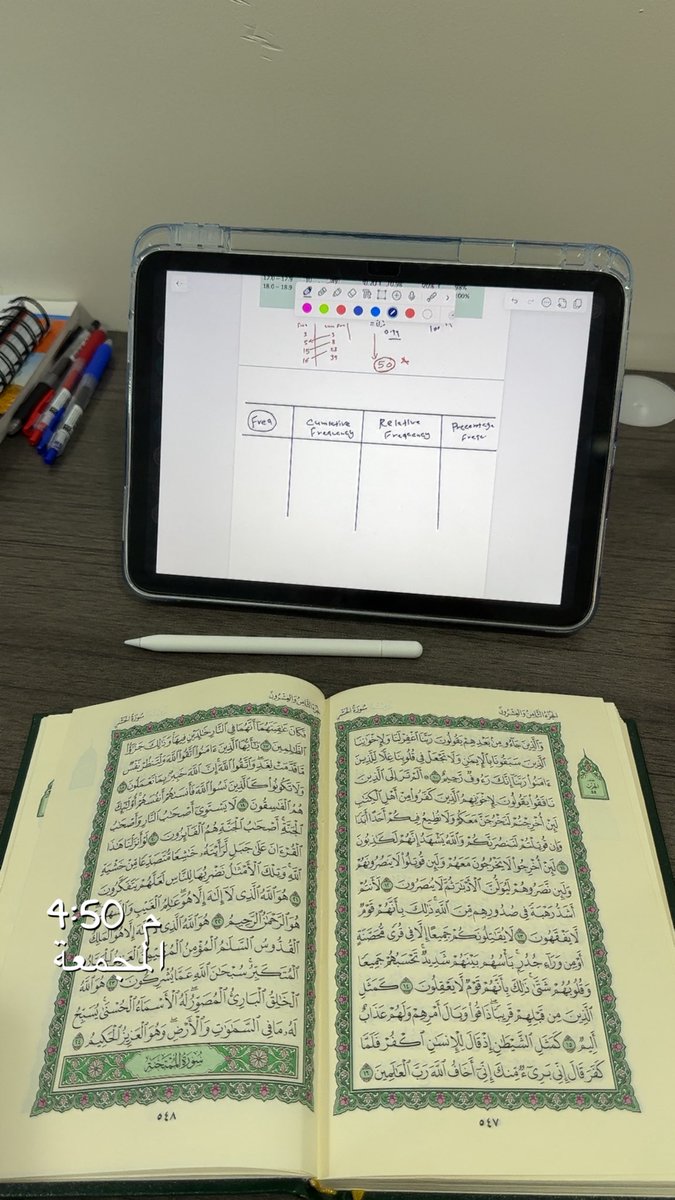 17.0 – 17.9
18.0 – 18.9
98%
100%
3
3
5
8
15
23
16
39
0.99
50
Freq
Cumulative
Frequency
Relative
Frequency
Precentage
سُورَةُ الحَشْرِ
الجُزْءُ الثَّامِنُ وَالعِشْرُونَ
وَالَّذِينَ جَاءُو مِنْ بَعْدِهِمْ يَقُولُونَ رَبَّنَا اغْفِرْ لَنَا وَلِإِخْوَانِنَا
الَّذِينَ سَبَقُونَا بِالْإِيمَانِ وَلَا تَجْعَلْ فِي قُلُوبِنَا غِلًّا لِلَّذِينَ
ءَامَنُوا رَبَّنَا إِنَّكَ رَءُوفٌ رَحِيمٌ ١٠ أَلَمْ تَرَ إِلَى الَّذِينَ
نَافَقُوا يَقُولُونَ لِإِخْوَانِهِمُ الَّذِينَ كَفَرُوا مِنْ أَهْلِ الْكِتَابِ
لَئِنْ أُخْرِجْتُمْ لَنَخْرُجَنَّ مَعَكُمْ وَلَا نُطِيعُ فِيكُمْ أَحَدًا أَبَدًا
وَإِنْ قُوتِلْتُمْ لَنَنْصُرَنَّكُمْ وَاللَّهُ يَشْهَدُ إِنَّهُمْ لَكَاذِبُونَ
١١ لَئِنْ أُخْرِجُوا لَا يَخْرُجُونَ مَعَهُمْ وَلَئِنْ قُوتِلُوا لَا يَنْصُرُونَهُمْ
وَلَئِنْ نَصَرُوهُمْ لَيُوَلُّنَّ الْأَدْبَارَ ثُمَّ لَا يُنْصَرُونَ ١٢ لَأَنْتُمْ
أَشَدُّ رَهْبَةً فِي صُدُورِهِمْ مِنَ اللَّهِ ذَلِكَ بِأَنَّهُمْ قَوْمٌ
لَا يَفْقَهُونَ ١٣ لَا يُقَاتِلُونَكُمْ جَمِيعًا إِلَّا فِي قُرًى مُحَصَّنَةٍ
أَوْ مِنْ وَرَاءِ جُدُرٍ بَأْسُهُمْ بَيْنَهُمْ شَدِيدٌ تَحْسَبُهُمْ جَمِيعًا
وَقُلُوبُهُمْ شَتَّى ذَلِكَ بِأَنَّهُمْ قَوْمٌ لَا يَعْقِلُونَ ١٤ كَمَثَلِ
الَّذِينَ مِنْ قَبْلِهِمْ قَرِيبًا ذَاقُوا وَبَالَ أَمْرِهِمْ وَلَهُمْ عَذَابٌ
أَلِيمٌ ١٥ كَمَثَلِ الشَّيْطَانِ إِذْ قَالَ لِلْإِنْسَانِ اكْفُرْ فَلَمَّا
كَفَرَ قَالَ إِنِّي بَرِيءٌ مِنْكَ إِنِّي أَخَافُ اللَّهَ رَبَّ الْعَالَمِينَ ١٦
٥٤٧
الجُزْءُ الثَّامِنُ وَالعِشْرُونَ
سُورَةُ الحَشْرِ
فَكَانَ عَاقِبَتَهُمَا أَنَّهُمَا فِي النَّارِ خَالِدَيْنِ فِيهَا وَذَلِكَ جَزَاءُ
الظَّالِمِينَ ١٧ يَا أَيُّهَا الَّذِينَ ءَامَنُوا اتَّقُوا اللَّهَ وَلْتَنْظُرْ نَفْسٌ
مَا قَدَّمَتْ لِغَدٍ وَاتَّقُوا اللَّهَ إِنَّ اللَّهَ خَبِيرٌ بِمَا تَعْمَلُونَ ١٨
وَلَا تَكُونُوا كَالَّذِينَ نَسُوا اللَّهَ فَأَنْسَاهُمْ أَنْفُسَهُمْ أُولَئِكَ
هُمُ الْفَاسِقُونَ ١٩ لَا يَسْتَوِي أَصْحَابُ النَّارِ وَأَصْحَابُ
الْجَنَّةِ أَصْحَابُ الْجَنَّةِ هُمُ الْفَائِزُونَ ٢٠ لَوْ أَنْزَلْنَا هَذَا
الْقُرْءَانَ عَلَى جَبَلٍ لَرَأَيْتَهُ خَاشِعًا مُتَصَدِّعًا مِنْ خَشْيَةِ
اللَّهِ وَتِلْكَ الْأَمْثَالُ نَضْرِبُهَا لِلنَّاسِ لَعَلَّهُمْ يَتَفَكَّرُونَ
٢١ هُوَ اللَّهُ الَّذِي لَا إِلَهَ إِلَّا هُوَ عَالِمُ الْغَيْبِ
هُوَ الرَّحْمَنُ الرَّحِيمُ ٢٢ هُوَ اللَّهُ الَّذِي لَا إِلَهَ إِلَّا هُوَ الْمَلِكُ
الْقُدُّوسُ السَّلَامُ الْمُؤْمِنُ
الْمُتَكَبِّرُ سُبْحَانَ اللَّهِ عَمَّا يُشْرِكُونَ ٢٣ هُوَ اللَّهُ
الْخَالِقُ الْبَارِئُ الْمُصَوِّرُ لَهُ الْأَسْمَاءُ الْحُسْنَى يُسَبِّحُ
لَهُ مَا فِي السَّمَاوَاتِ وَالْأَرْضِ وَهُوَ الْعَزِيزُ الْحَكِيمُ ٢٤
سُورَةُ المُمْتَحنَةِ
٥٤٨
4:50 م
الجمعة